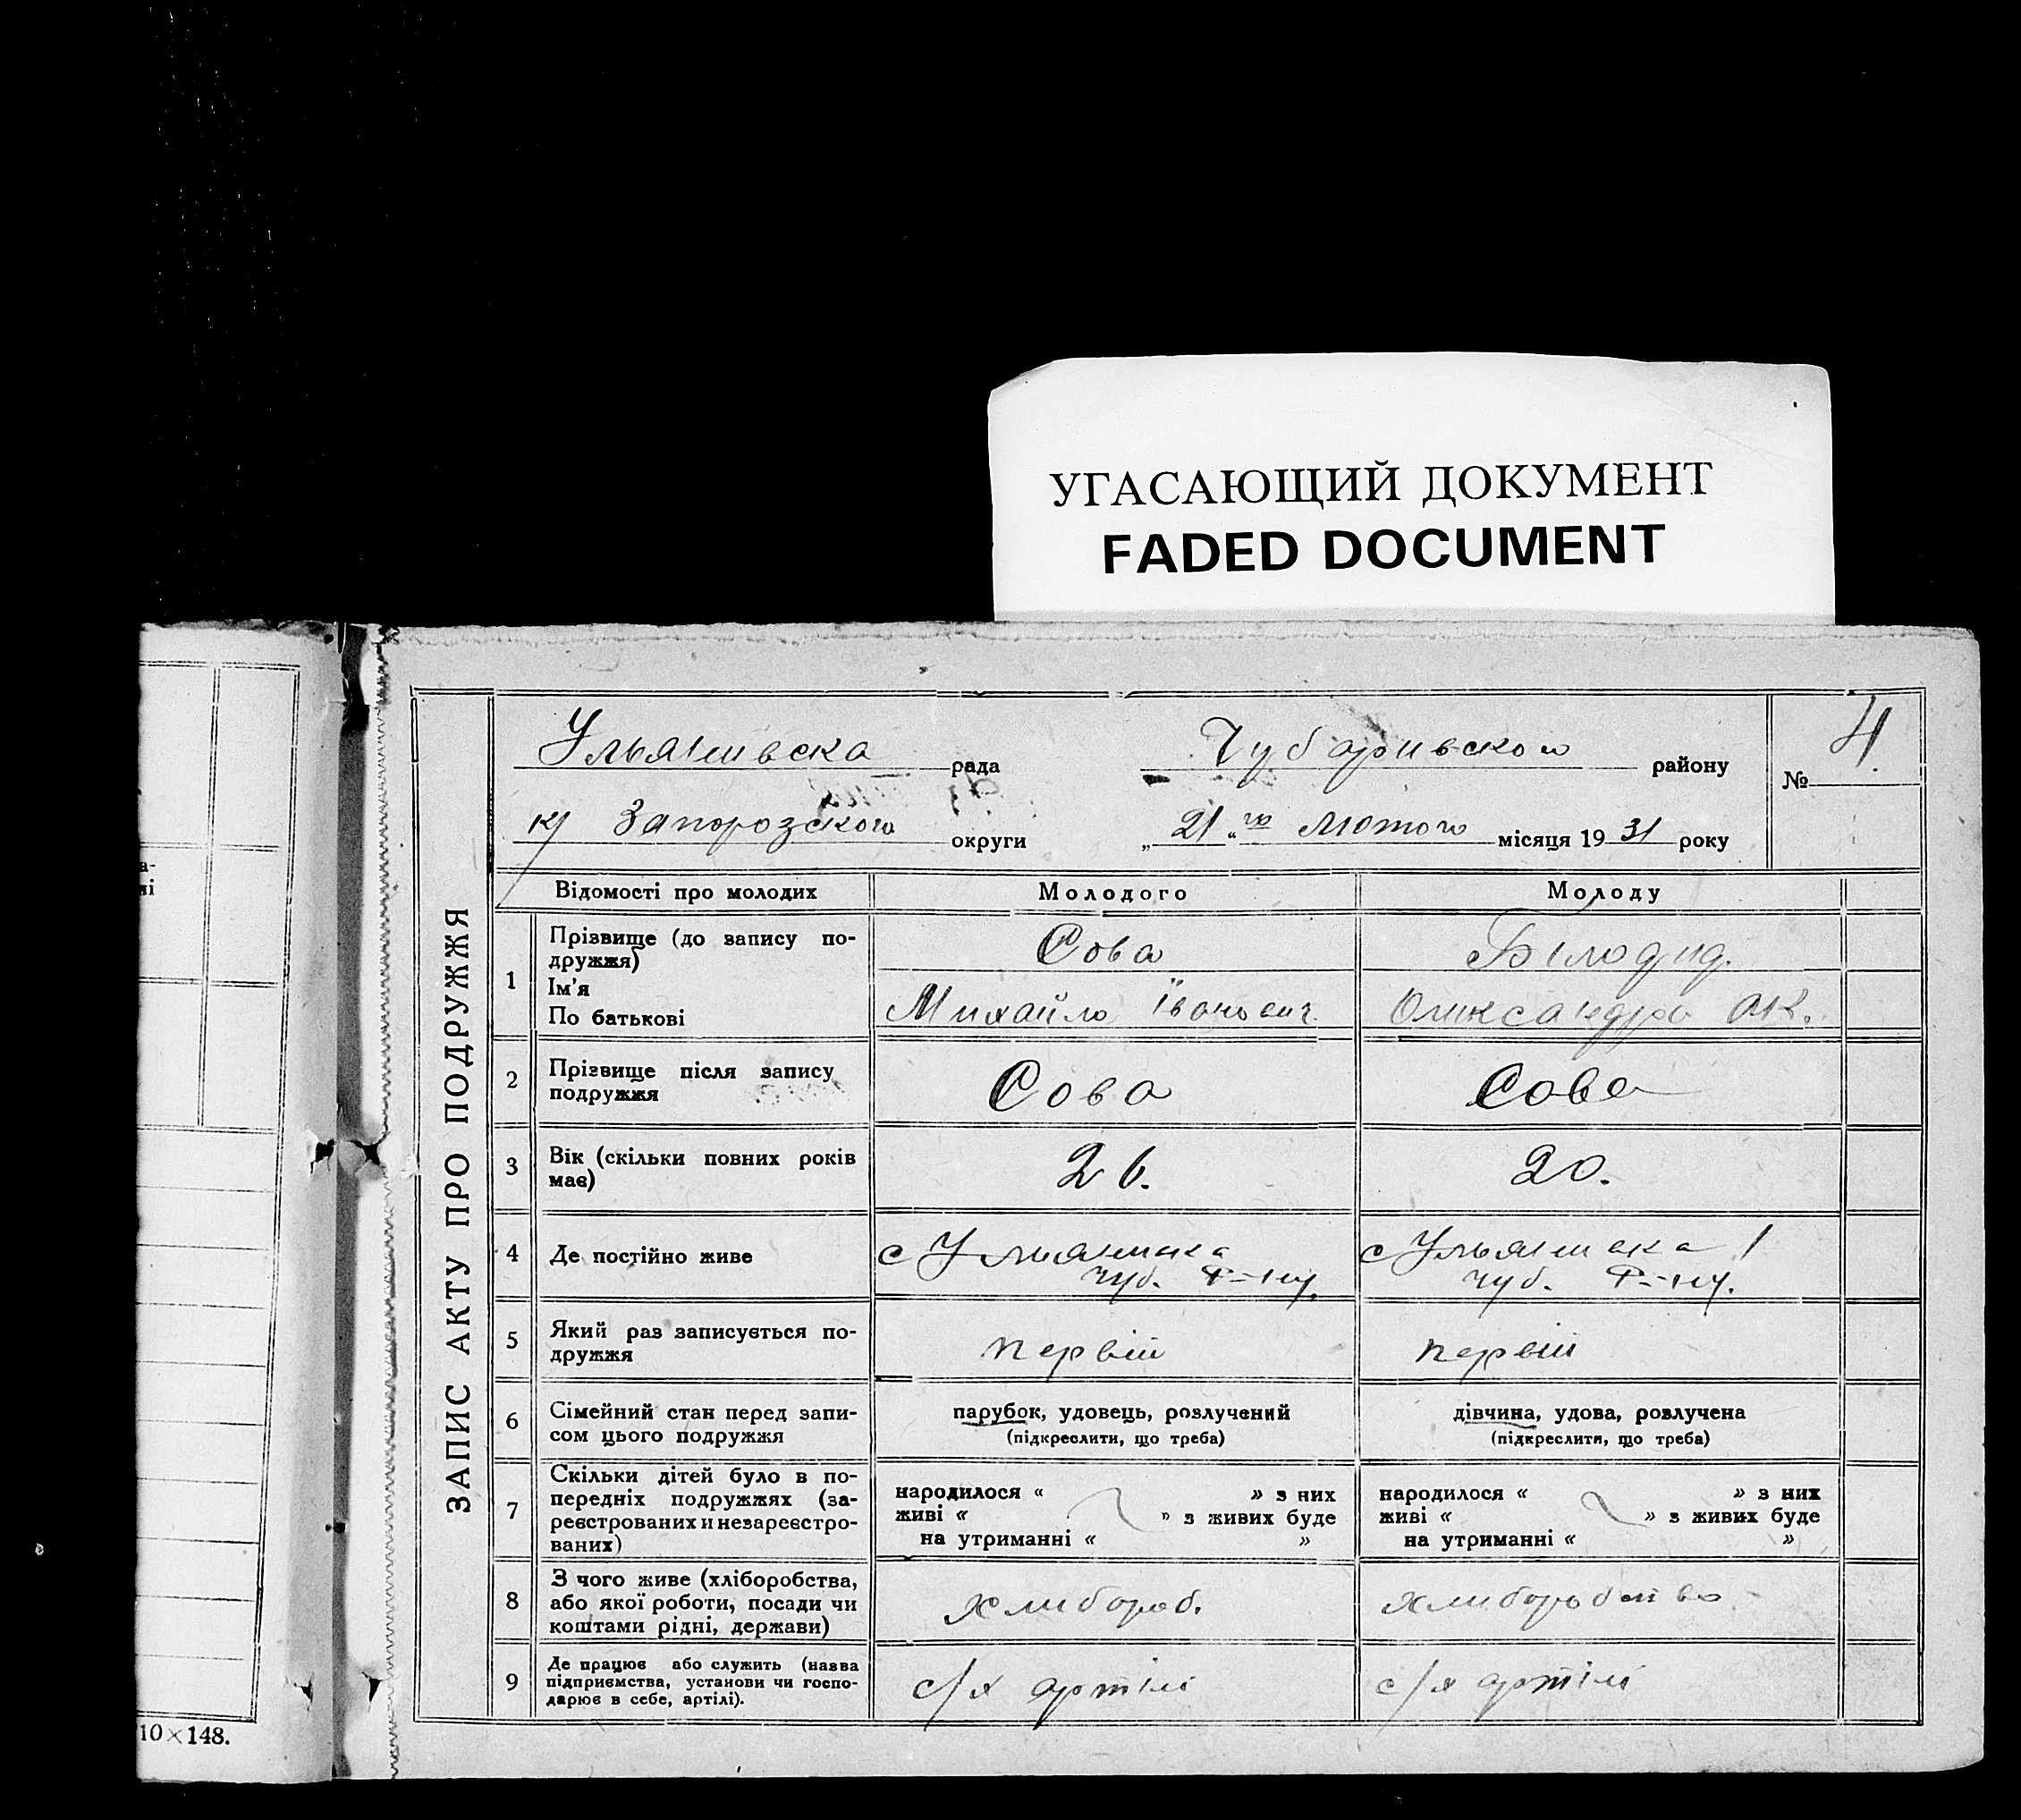 УГАСАЮЩИЙ ДОКУМЕНТ
FADED DOCUMENT
ЗАПИС АКТУ ПРО ПОДРУЖЖЯ
Ульянивска рада Чубаривського району № 4.
к/ Запорозского округи „21“ го Лютого місяця 1931 року
Відомості про молодих Молодого Молоду
1 Прізвище (до запису подружжя) Сова Билодид.
Ім'я
По батькові Михайло Їванович Олександра Ак.
2 Прізвище після запису подружжя Сова Сова
3 Вік (скільки повних років має) 26. 20.
4 Де постійно живе с Ульянивка с Ульянивка
Чуб. Р-ну. Чуб. Р-ну.
5 Який раз записується подружжя первій первій
6 Сімейний стан перед записом цього подружжя парубок, удовець, розлучений дівчина, удова, розлучена
(підкреслити, що треба) (підкреслити, що треба)
7 Скільки дітей було в попередніх подружжях (зареєстрованих и незареєстрованих)
народилося « » з них народилося « » з них
живі « » з живих буде живі « » з живих буде
на утриманні « » на утриманні « »
8 З чого живе (хліборобства, або якої роботи, посади чи коштами рідні, держави) хлибороб. хлиборобство
9 Де працює або служить (назва підприємства, установи чи господарює в себе, артілі). с/х артілі с/х артілі
10×148.